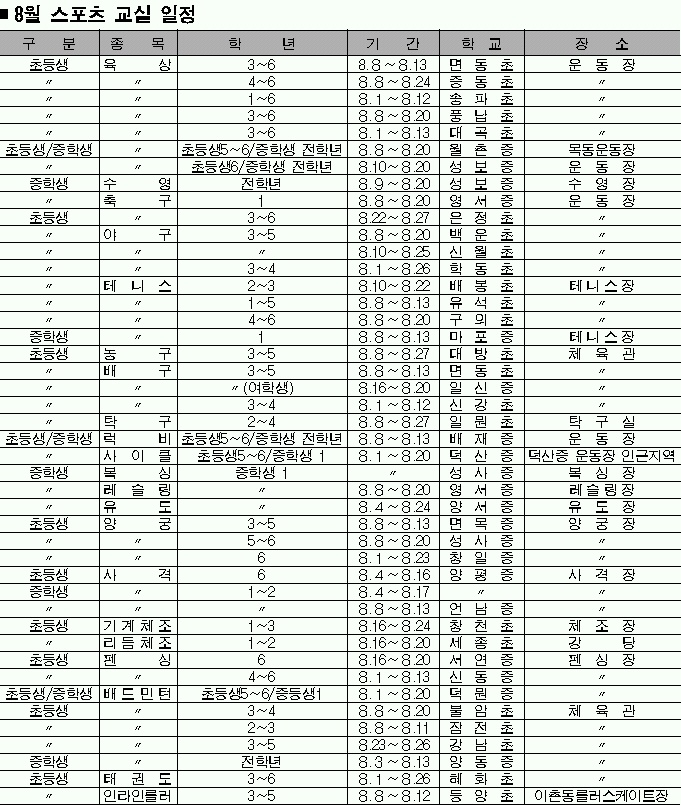 ■ 8월 스포츠 교실 일정
구 분 종 목 학 년 기 간 학 교 장 소
초등생 육 상 3~6 8.8~8.13 면 동 초 운 동 장
〃 〃 4~6 8.8~8.24 중 동 초 〃
〃 〃 1~6 8.1~8.12 송 파 초 〃
〃 〃 3~6 8.8~8.20 풍 납 초 〃
〃 〃 3~6 8.1~8.13 대 곡 초 〃
초등생/중학생 〃 초등생5~6/중학생 전학년 8.8~8.20 월 촌 중 목동운동장
〃 〃 초등생6/중학생 전학년 8.10~8.20 성 보 중 운 동 장
중학생 수 영 전학년 8.9~8.20 성 보 중 수 영 장
〃 축 구 1 8.8~8.20 영 서 중 운 동 장
초등생 〃 3~6 8.22~8.27 은 정 초 〃
〃 야 구 3~5 8.8~8.20 백 운 초 〃
〃 〃 〃 8.10~8.25 신 월 초 〃
〃 〃 3~4 8.1~8.26 학 동 초 〃
〃 테 니 스 2~3 8.10~8.22 배 봉 초 테니스장
〃 〃 1~5 8.8~8.13 유 석 초 〃
〃 〃 4~6 8.8~8.20 구 의 초 〃
중학생 〃 1 8.8~8.13 마 포 중 테니스장
초등생 농 구 3~5 8.8~8.27 대 방 초 체 육 관
〃 배 구 3~5 8.8~8.13 면 동 초 〃
〃 〃 〃(여학생) 8.16~8.20 일 신 중 〃
〃 〃 3~4 8.1~8.12 신 강 초 〃
〃 탁 구 2~4 8.8~8.27 일 원 초 탁 구 실
초등생/중학생 럭 비 초등생5~6/중학생 전학년 8.8~8.13 배 재 중 운 동 장
〃 사 이 클 초등생5~6/중학생 1 8.1~8.20 덕 산 중 덕산중 운동장 인근지역
중학생 복 싱 중학생 1 〃 성 사 중 복 싱 장
〃 레 슬 링 〃 8.8~8.20 영 서 중 레슬링장
〃 유 도 〃 8.4~8.24 양 서 중 유 도 장
초등생 양 궁 3~5 8.8~8.13 면 목 중 양 궁 장
〃 〃 5~6 8.8~8.20 성 사 중 〃
〃 〃 6 8.1~8.23 창 일 중 〃
초등생 사 격 6 8.4~8.16 양 평 중 사 격 장
중학생 〃 1~2 8.4~8.17 〃 〃
〃 〃 〃 8.8~8.13 언 남 중 〃
초등생 기계체조 1~3 8.16~8.24 창 천 초 체 조 장
〃 리듬체조 1~2 8.16~8.20 세 종 초 강 당
초등생 펜 싱 6 8.16~8.20 서 연 중 펜 싱 장
〃 〃 4~6 8.1~8.13 신 동 중 〃
초등생/중학생 배드민턴 초등생5~6/중등생1 8.1~8.20 덕 원 중 〃
초등생 〃 3~4 8.8~8.20 불 암 초 체 육 관
〃 〃 2~3 8.8~8.11 잠 전 초 〃
〃 〃 3~5 8.23~8.26 강 남 초 〃
중학생 〃 전학년 8.3~8.13 양 동 중 〃
초등생 태 권 도 3~6 8.1~8.26 혜 화 초 〃
〃 인라인롤러 3~5 8.8~8.12 등 양 초 이촌동롤러스케이트장